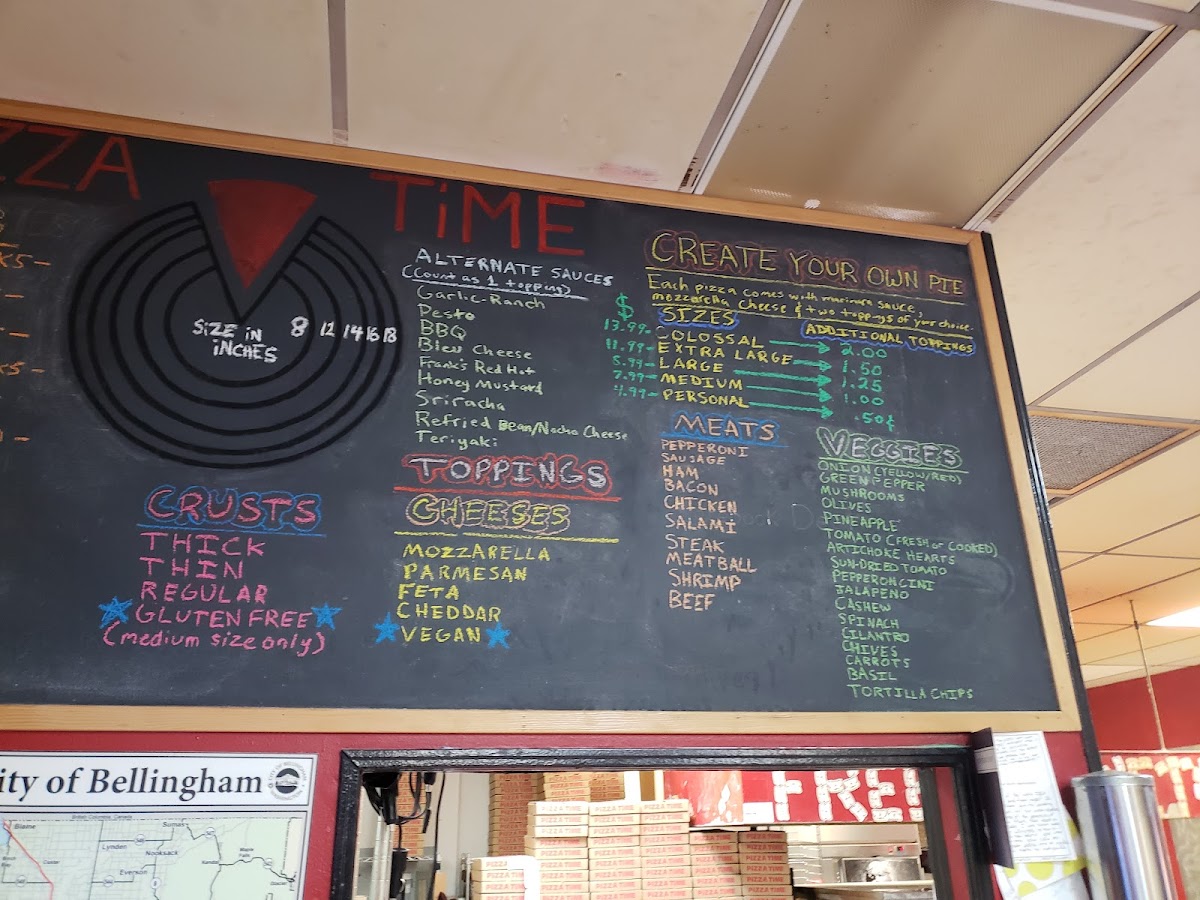 ZZA TiME
SiZE iN
iNCHES
8 12 14 16 18
CRUSTS
THICK
THIN
REGULAR
GLUTEN FREE
(medium size only)
ALTERNATE SAUCES
(Count as 1 topping)
Garlic-Ranch
Pesto
BBQ
Bleu Cheese
Frank's Red Hot
Honey Mustard
Sriracha
Refried Bean/Nacho Cheese
Teriyaki
TOPPINGS
CHEESES
MOZZARELLA
PARMESAN
FETA
CHEDDAR
VEGAN
CREATE YOUR OWN PIE
Each pizza comes with marinara sauce,
mozzarella cheese & two toppings of your choice.
$ SIZES ADDITIONAL TOPPINGS
13.99- COLOSSAL 2.00
11.99- EXTRA LARGE 1.50
8.99- LARGE 1.25
7.99- MEDIUM 1.00
4.99- PERSONAL .50¢
MEATS
PEPPERONI
SAUSAGE
HAM
BACON
CHICKEN
SALAMi
STEAK
MEATBALL
SHRIMP
BEEF
VEGGIES
ONION (YELLOW/RED)
GREEN PEPPER
MUSHROOMS
OLIVES
PINEAPPLE
TOMATO (FRESH or COOKED)
ARTICHOKE HEARTS
SUN-DRIED TOMATO
PEPPERONCINI
JALAPENO
CASHEW
SPINACH
CILANTRO
CHIVES
CARROTS
BASIL
TORTILLA CHIPS
ity of Bellingham
British Columbia, Canada
Blaine
Lynden
Sumas
Nooksack
Everson
Custer
Kendall
Maple
Falls
Glacier
FREE
PIZZA TIME